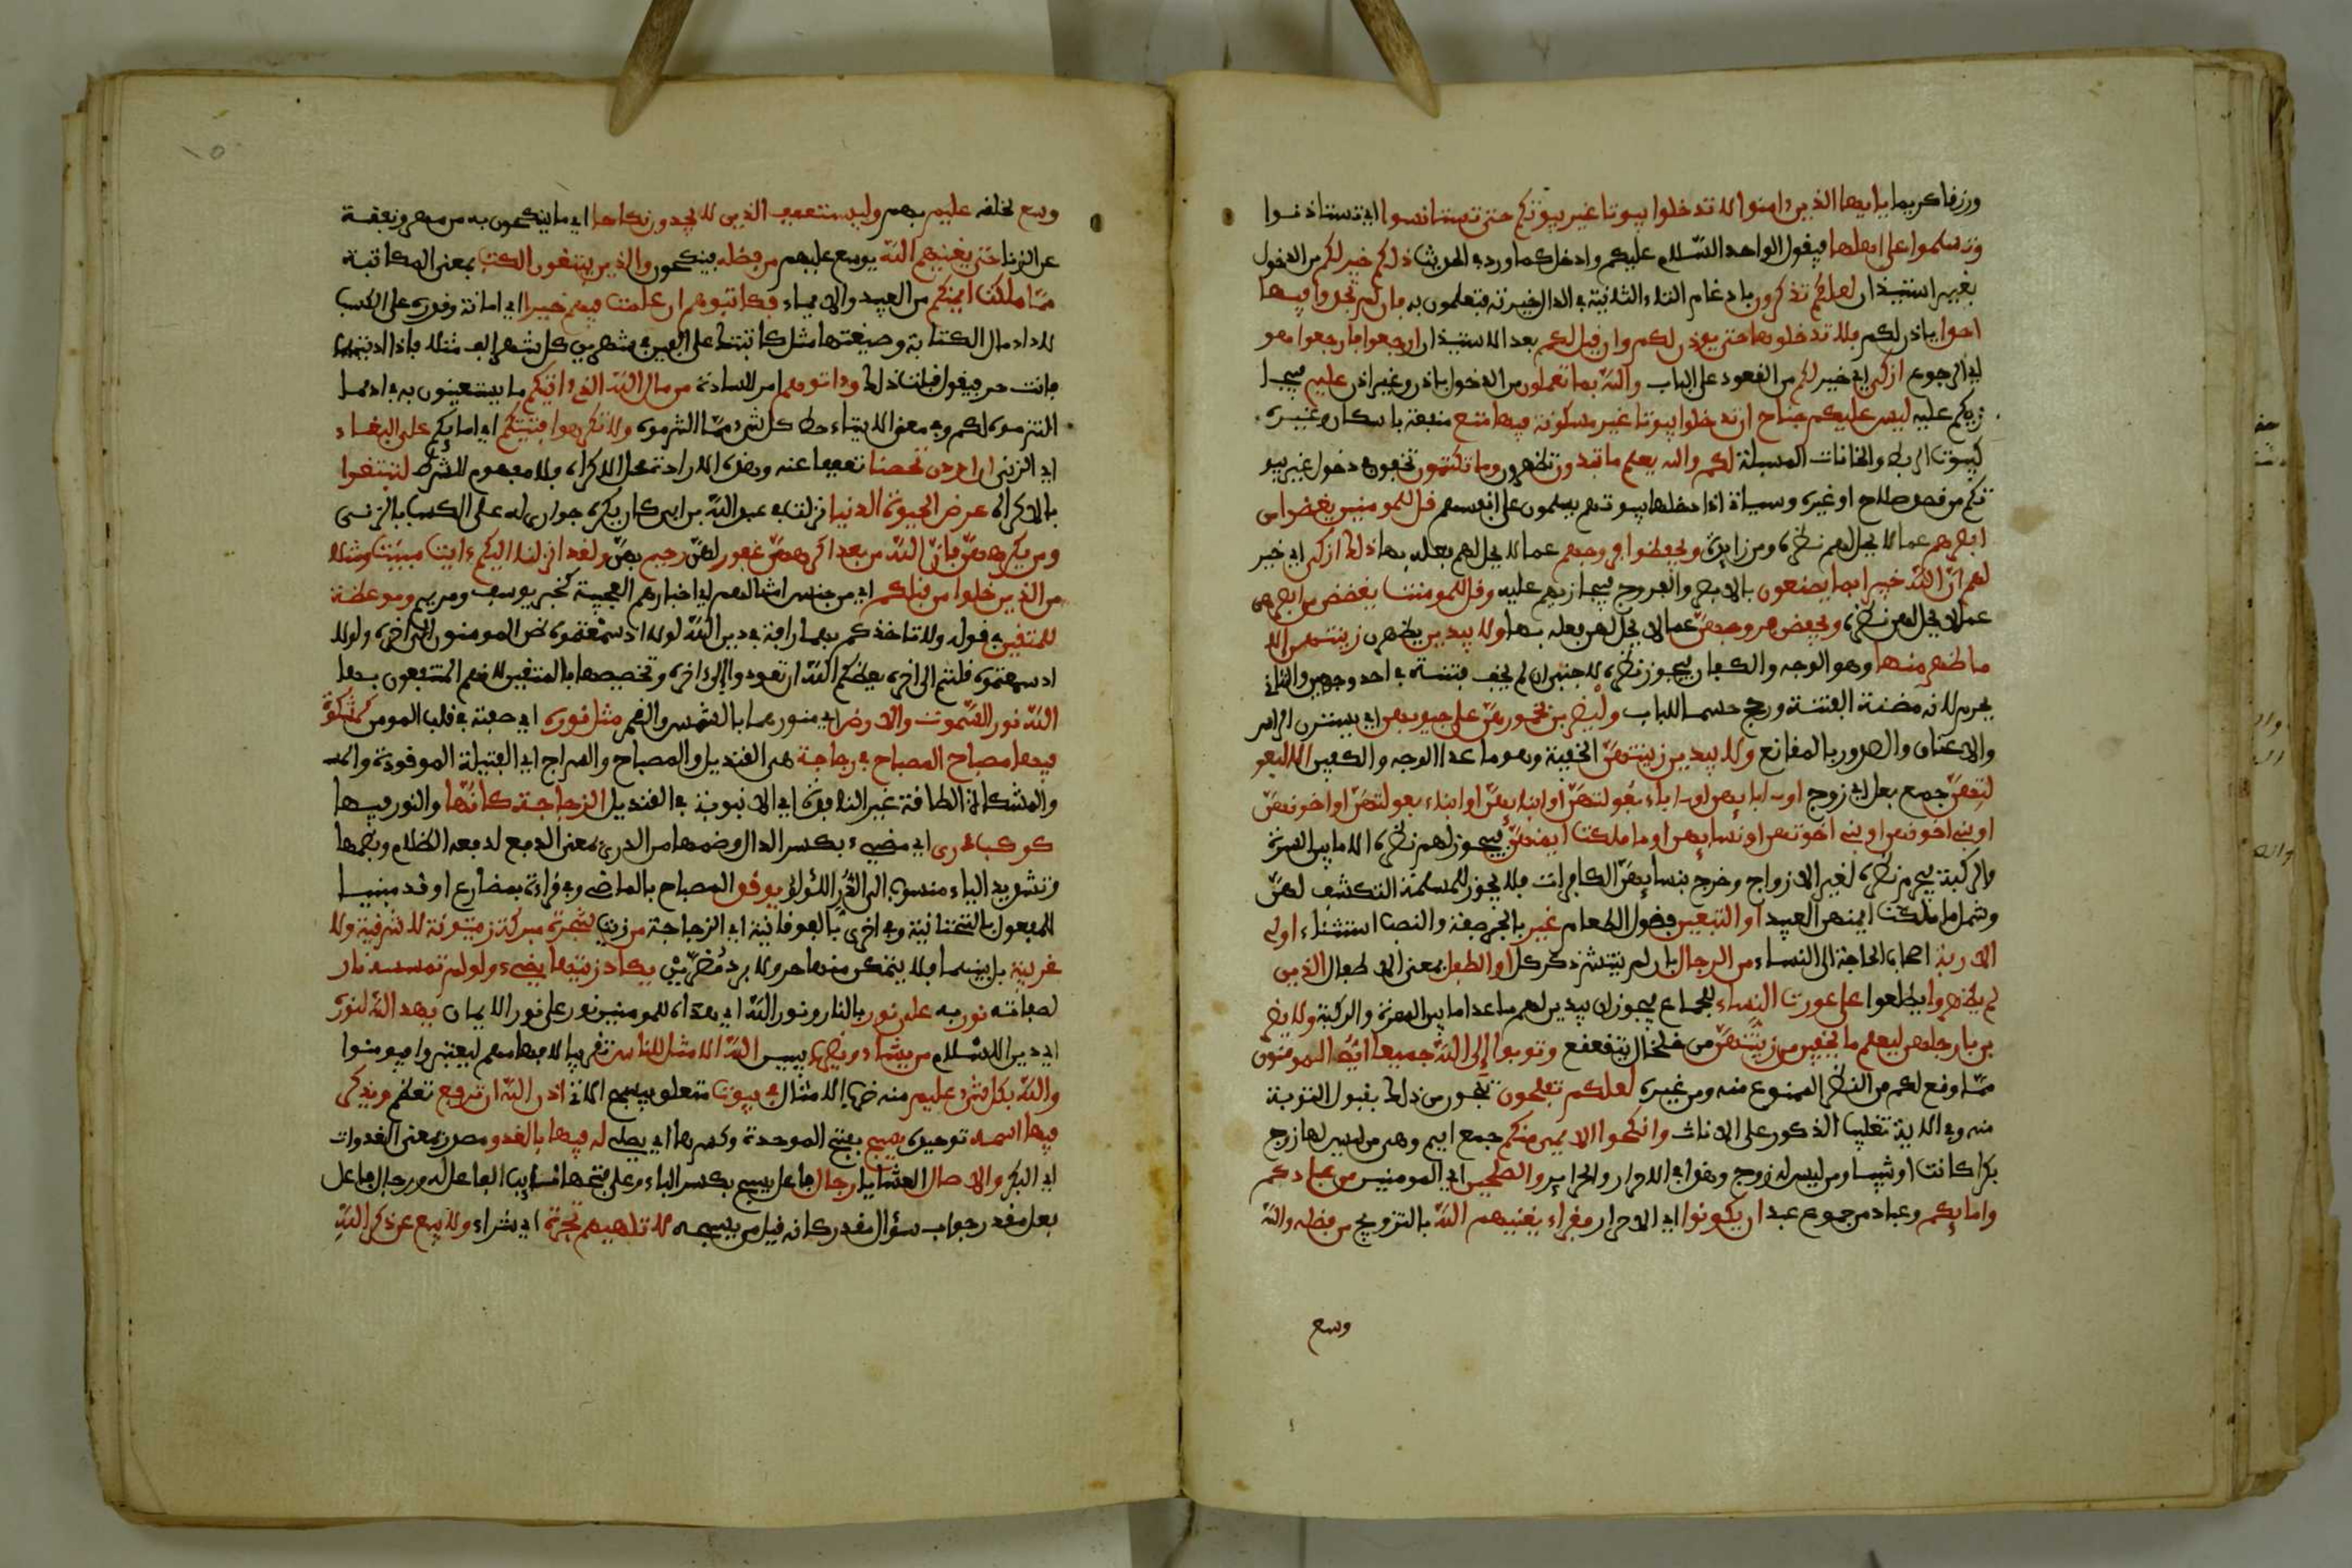 ورزفا كريما يايها الذين ءامنوا لا تدخلوا بيوتا غير بيوتكم حتى تستانسوا اي تستاذنوا
وتسلموا على اهلها فيقول الواحد السّلام عليكم وادخل كما ورد في الحديث ذلكم خير لكم من الدخول
بغير استيذان لعلكم تذكرون بادغام التاء الثانية في الذال خيرته فتعلمون به فان لم تجدوا فيها
احدا ياذن لكم فلا تدخلوها حتى يوذن لكم وان فيل لكم بعد الاستيذان ارجعوا فارجعوا هو
اي الرجوع ازكى اي خير لكم من القعود على الباب والله بما تعملون من الدخول باذن وغير اذن عليم فيجا
زيكم عليه ليس عليكم جناح ان تدخلوا بيوتا غير مسكونة فيها متع منفعة باستكان وغيره
كبيوت الربط والخانات المسبلة لكم والله يعلم ما تبدون تظهرون وما تكتمون تخفون في دخول غير بيو
تكم من فصد صلاح او غيره وسياتي اذا دخلتم بيوتهم يسلمون على انفسهم فل للمومنين يغضوا من
ابصرهم عما لا يحل لهم نظره ومن زايدة ويحفظوا فروجهم عما لا يحل لهم بعله بها ذلك ازكى اي خير
لهم انّ الله خبير بما يصنعون بالابصر والفروج فيجازيهم عليه وفل للمومنت يغضضن من ابصرهن
عما لا يحل لهن نظره ويحفظن فروجهنّ عما لا يحل لهن بعله بها ولا يبدين يظهرن زينتهن الا
ما ظهر منها وهو الوجه والكفان فيجوز نظره لاجنبي ان لم يخف فتنة في احد وجهين والثاني
يحرم لانه مضنة الفتنة ورجح حسما للباب وليضربن بخمورهنّ على جيوبهن اي يسترن الراس
والاعناق والصدور بالمفانع ولا يبدين زينتهنّ الخفية وهو ما عدا الوجه والكفين الا لبعو
لتهنّ جمع بعل اي زوج او ءابايهن او ءاباء بعولتهنّ او ابنايهنّ او ابناء بعولتهنّ او اخونهنّ
او بني اخونهن او بني اخوتهن او نسايهن او ما ملكت ايمنهنّ فيجوز لهم نظره الا ما بين السرة
والركبة فيحرم نظره لغير الازواج وخرج بنسايهنّ الكافرات فلا يجوز للمسلمة التكشف لهنّ
وشمل ما ملكت ايمنهن العبيد او التبعين فضول الطعام غير بالجر صفة والنصب استثناء اولي
الاربة اصحاب الحاجة الى النساء من الرجال بان لم ينتشر ذكر كل او الطفل بمعنى الاطفال الذين
لم يظهروا يطلعوا على عورت النساء للجماع فيجوز ان يبدين لهم ما عدا ما بين السرة والركبة ولا يضر
بن بارجلهن ليعلم ما يخفين من زينتهنّ من خلخال يتفعفع وتوبوا إلى الله جميعا ايه المومنون
ممّا وفع لكم من النظر الممنوع منه ومن غيره لعلكم تفلحون تنجون من ذلك بقبول التوبة
منه وفي الاية تغليب الذكور على الاناث وانكحوا الايمى منكم جمع ايم وهي من ليس لها زوج
بكرا كانت او ثيبا ومن ليس له زوج وهو في الاحرار والحراير والصلحين اي المومنين من عبادكم
وامايكم وعباد من جموع عبد ان يكونوا اي الاحرار فقراء يغنيهم الله بالتزويج من فضله والله
وسع
وسع لخلفه عليم بهم وليستعفف الذين لا يجدون نكاحا اي ما ينكحون به من مهر ونفقة
عن الزنا حتى يغنيهم الله يوسع عليهم من فضله فينكحون والذين يبتغون الكتب بمعنى المكاتبة
ممّا ملكت ايمنكم من العبيد والاماء فكاتبوهم ان علمتم فيهم خيرا اي امانة وفدرة على الكسب
لاداء مال الكتابة وصيغتها مثل كاتبتك على الفين في شهرين كل شهر الف مثلا فاذا اديتهما
فانت حر فيفول فبلت ذلك وءاتوهم امر للسادة من مال الله الذي ءاتيكم ما يستعينون به في اداء ما
التزموه لكم وفي معنى الايتاء حط كل شيء ممّا التزموه ولا تكرهوا فتيتكم اي اماءكم على البغاء
اي الزنى ان اردن تحصنا تعففا عنه وهذه الارادة محل الاكراه فلا مفهوم للشرط لتبتغوا
بالاكراه عرض الحيوة الدنيا نزلت في عبد الله بن ابي كان يكره جواري له على الكسب بالزنى
ومن يكرههنّ فانّ الله من بعد اكرههنّ غفور لهنّ رحيم بهنّ ولفد انزلنا اليكم ءايت مبينت ومثلا
من الذين خلوا من فبلكم اي من جنس امثالهم اي اخبارهم العجيبة كخبر يوسف ومريم وموعظة
للمتفين في فوله ولا تاخذكم بهما رافة في دين الله لولا اذ سمعتموه ظن المومنون الى اخره ولولا
اذ سمعتموه فلتم الى اخره يعظكم الله ان تعودوا إلى اخره وتخصيصها بالمتفين لانهم المنتفعون بها
الله نور السّموت والارض اي منورهما بالشمس والفمر مثل نوره اي صفته في فلب المومن كمشكوة
فيها مصباح المصباح في زجاجة هي الفنديل والمصباح والسراج اي الفتيلة الموفودة
والمشكاة الطافة غير النافذة اي الانبوبة في الفنديل الزجاجة كانّها والنور فيها
كوكب درى اي مضيء بكسر الدال وضمها من الدرء بمعنى الدفع لدفعه الظلام وبضمها
وتشديد الياء منسوب الى الدُّر اللئولؤ يوفد المصباح بالماضي وفي فراءة بمضارع اوفد مبنيا
للمفعول بالتحتانية وفي اخرى بالفوفانية اي الزجاجة من زيت شجرة مبركة زيتونة لا شرفية ولا
غربية بل بينهما فلا يتمكن منها حر ولا برد مُضرّيْنِ يكاد زيتها يضيء ولو لم تمسسه نار
لصفائه نور به على نور بالنار ونور الله اي هداه للمومنين نور على نور الايمان يهد الله لنوره
اي دين الاسلام من يشاء ويضرب يبيين الله الامثل للناس تفريبا لافهامهم ليعتبروا فيومنوا
والله بكل شيء عليم منه ضرب الامثال في بيوت متعلق بيسبح الاتي اذن الله ان ترفع تعظم ويذكر
فيها اسمه توحيده يسبح بفتح الموحدة وكسرها اي يصلي له فيها بالغدو مصدر بمعنى الغدوات
اي البكر والاصال العشايا رجال فاعل يسبح بكسر الباء وعلى فتحها نايب الفاعل له ورجال فاعل
بعل مفدر جواب سؤال مفدر كانه فيل من يسبحه لا تلهيهم تجرة اي شراء ولا بيع عن ذكر الله